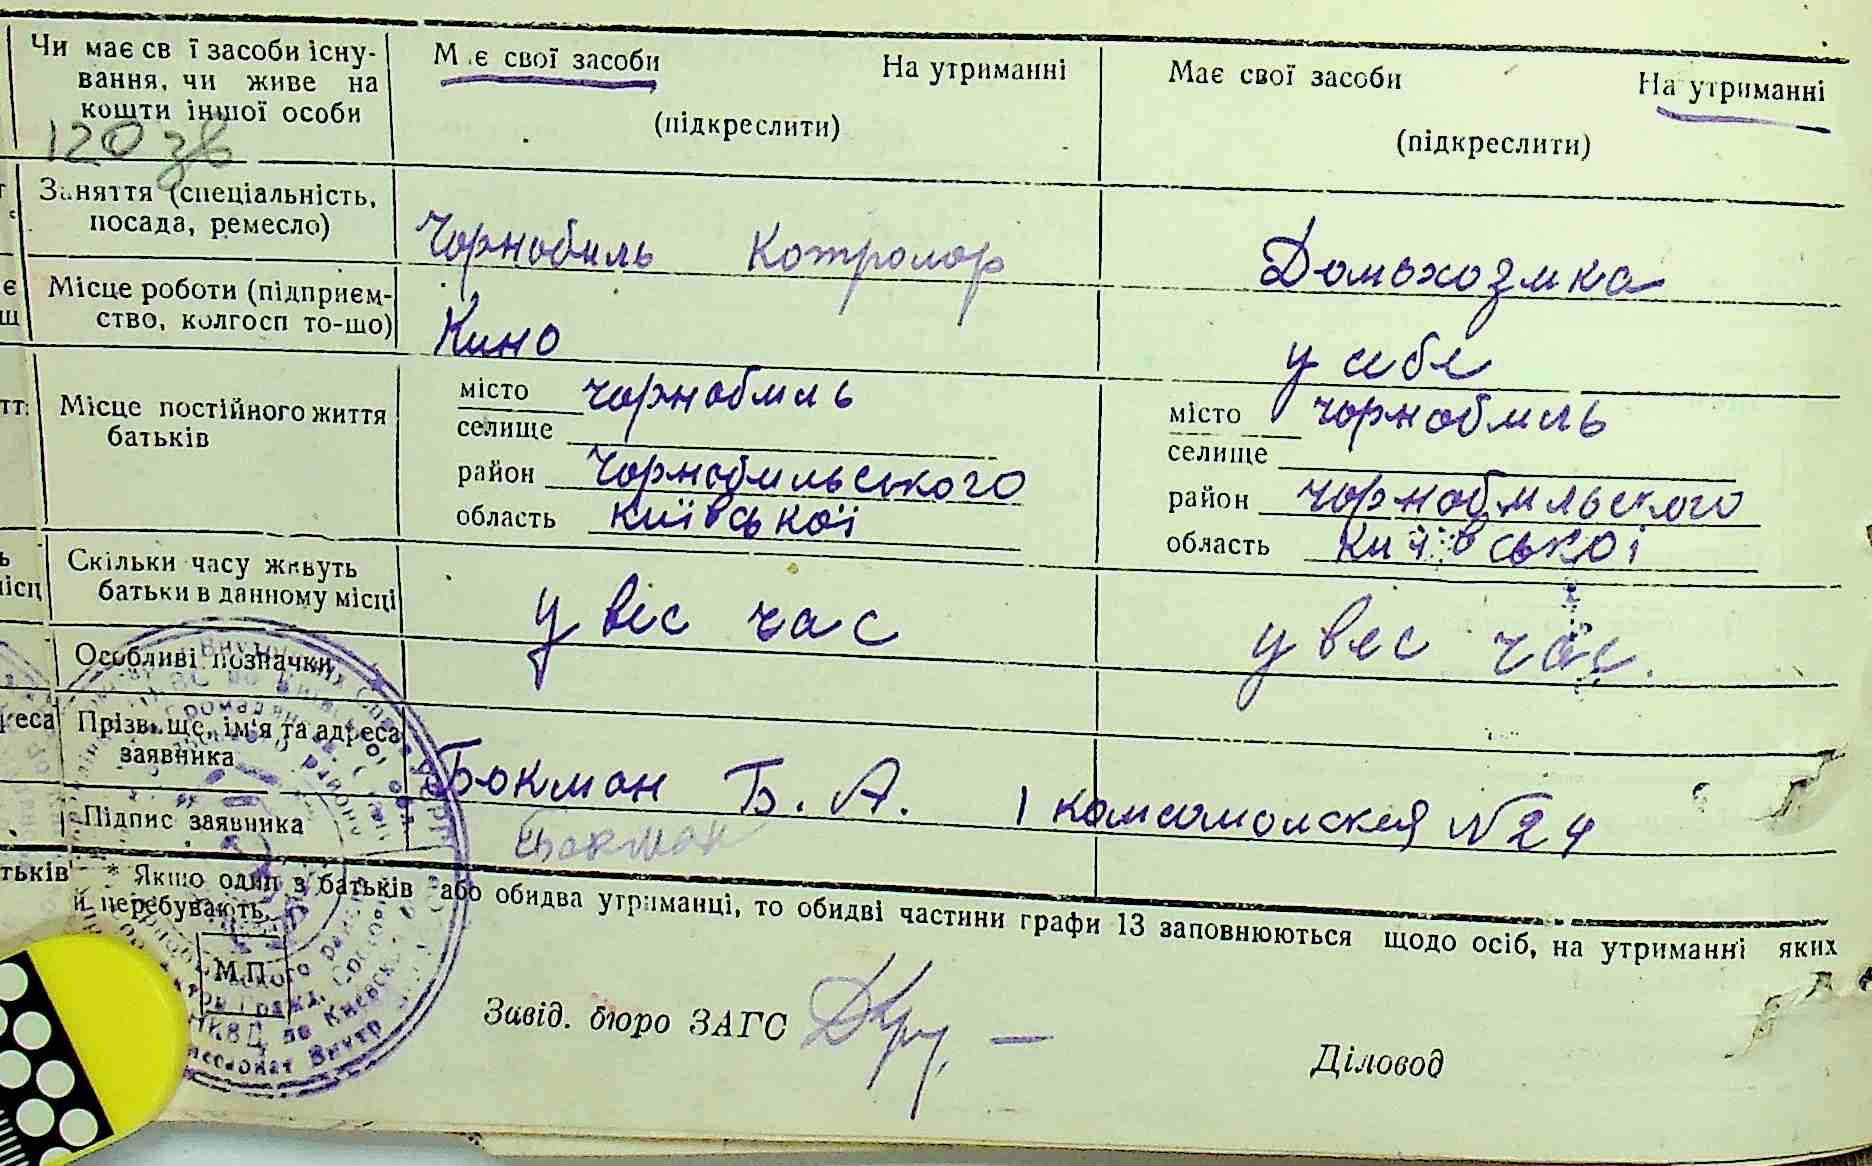 Чи має св ї засоби існу-
вання, чи живе на
кошти іншої особи
120 зв
М є свої засоби На утриманні
(підкреслити)
Має свої засоби На утриманні
(підкреслити)
Заняття (спеціальність,
посада, ремесло)
Чорнобиль Котролор
Домохозяика
Місце роботи (підприєм-
ство, колгосп то-що)
Кино
у себе
Місце постійного життя
батьків
місто чорнобиль
селище
район чорнобильського
область київської
місто чорнобиль
селище
район чорнобильського
область київської
Скільки часу живуть
батьки в данному місці
у віс час
у вес час.
Особливі позначки
Прізвище, ім'я та адреса
заявника
Бокман Б. А. 1 комсомолская №24
Підпис заявника
Бокман
* Якшо один з батьків або обидва утриманці, то обидві частини графи 13 заповнюються щодо осіб, на утриманні яких
й перебувають.
М.П.
Завід. бюро ЗАГС
Діловод